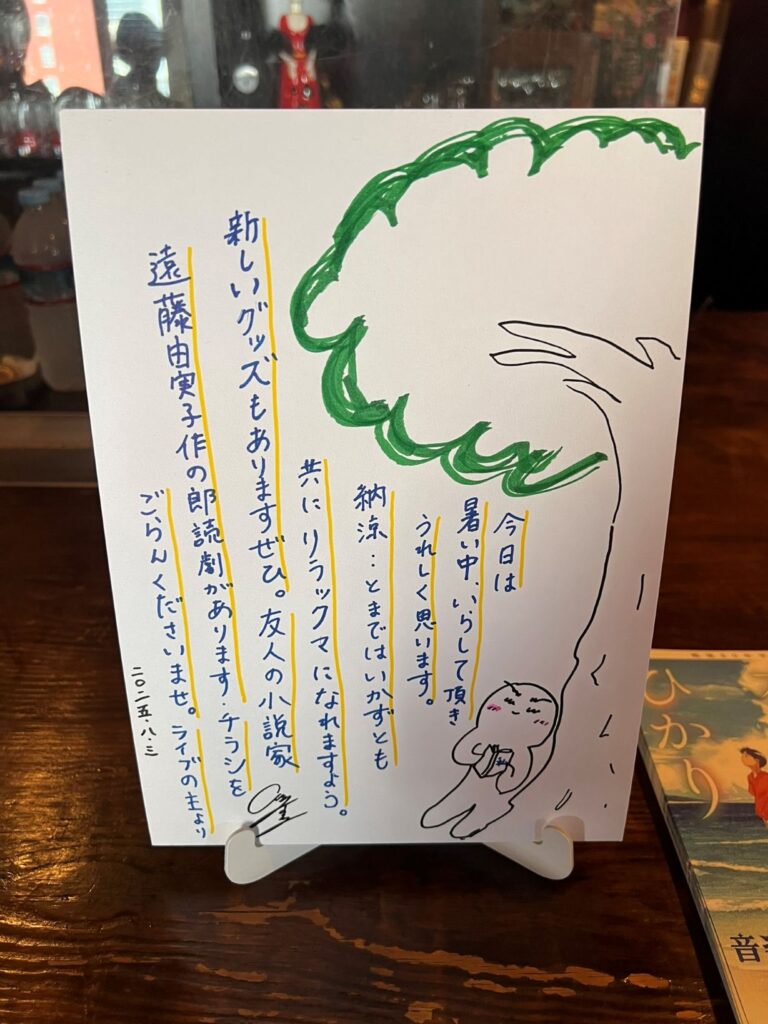 今日は
暑い中、いらして頂き
うれしく思います。
納涼…とまではいかずとも
共にリラックマになれますよう。
新しいグッズもありますぜひ。友人の小説家
遠藤由実子作の郎読劇があります.チラシを
ごらんくださいませ。ライブの主より
二〇二五・八・三
ひかり
音楽